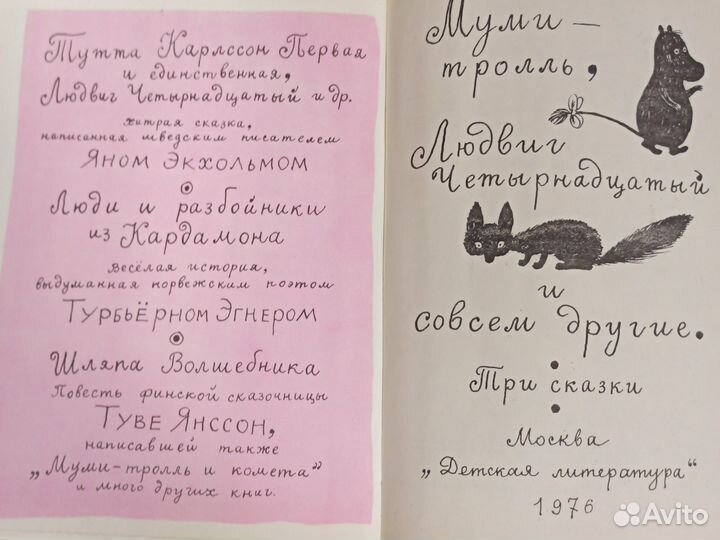 Тутта Карлссон Первая
и единственная,
Людвиг Четырнадцатый и др.
хитрая сказка,
написанная шведским писателем
Яном Экхольмом
Люди и разбойники
из Кардамона
Весёлая история,
выдуманная норвежским поэтом
Турбьёрном Эгнером
Шляпа Волшебника
Повесть финской сказочницы
Туве Янссон,
написавшей также
„Муми-тролль и комета”
и много других книг.
Муми-
тролль,
Людвиг
Четырнадцатый
и
совсем другие.
Три сказки
Москва
„Детская литература“
1976
Avito